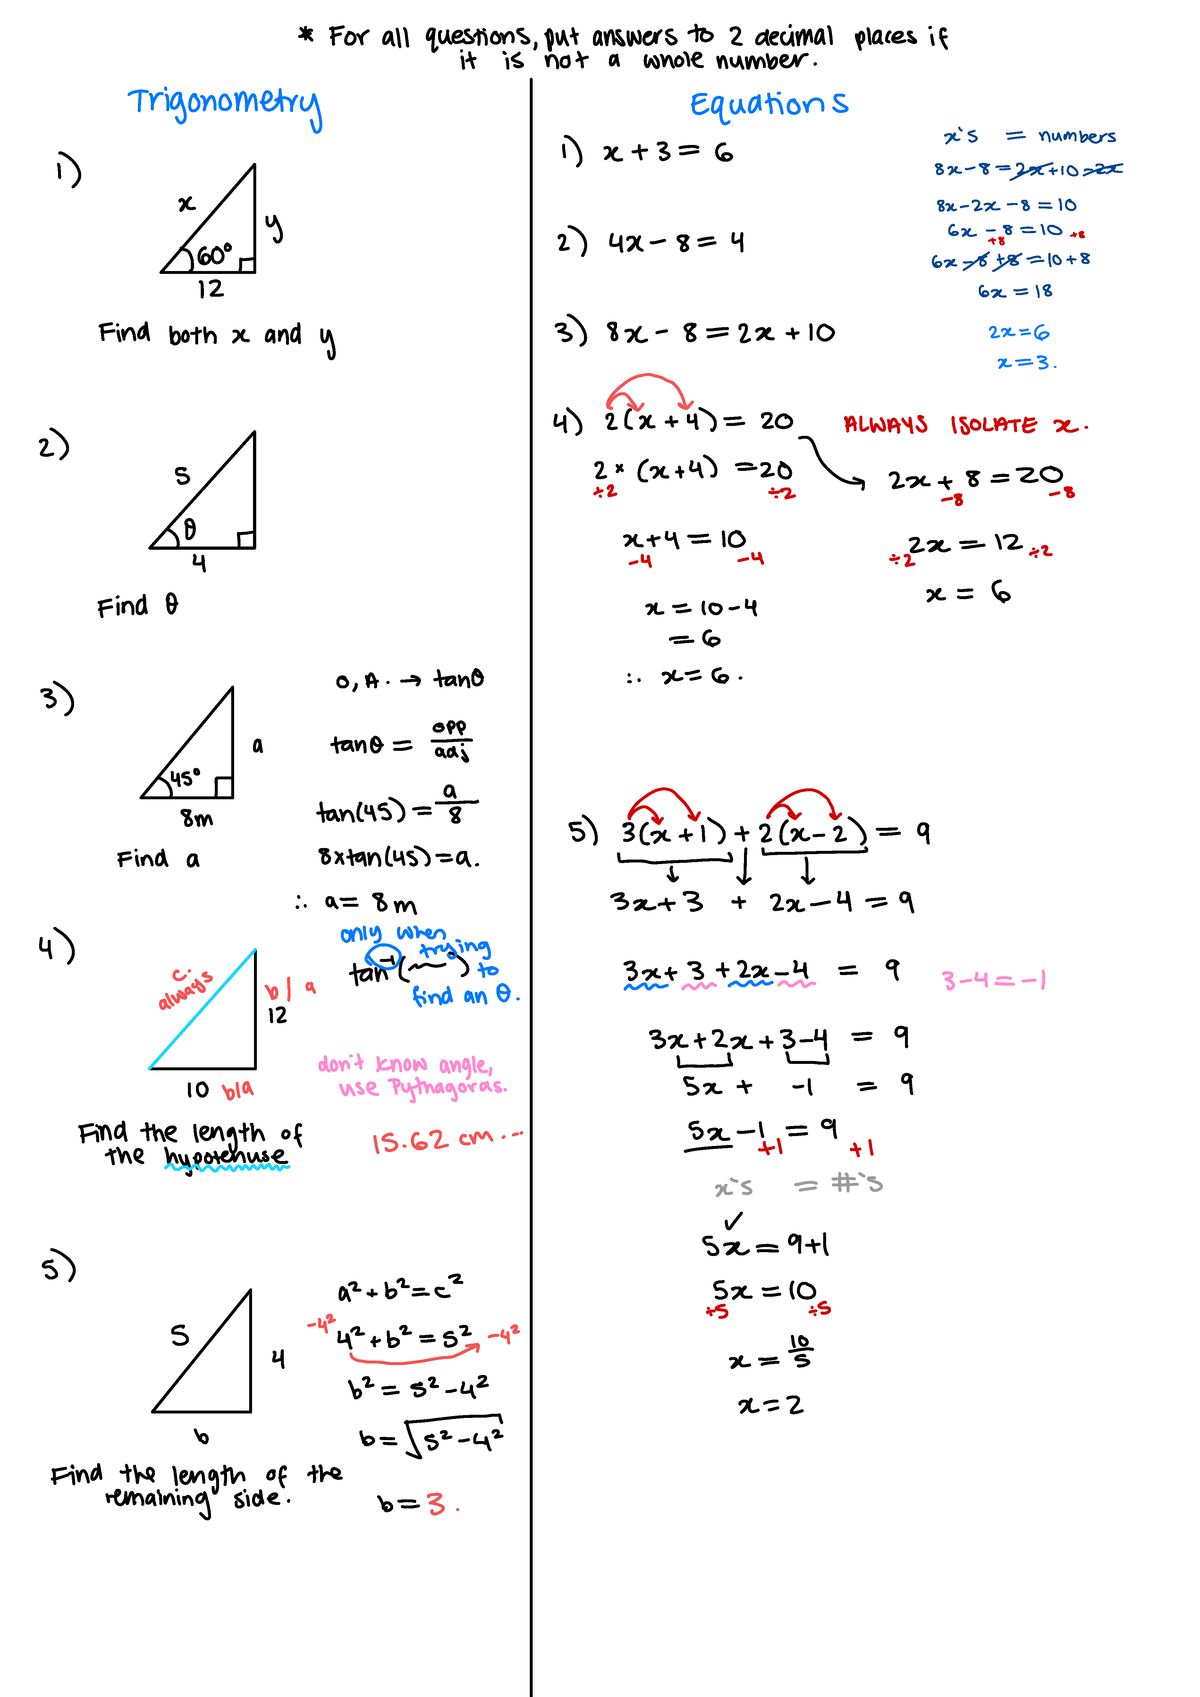 * For all questions, put answers to 2 decimal places if
it is not a whole number.
Trigonometry
1)
x
y
60°
12
Find both x and y
2)
5
θ
4
Find θ
3)
a
45°
8m
Find a
O, A. → tanθ
tanθ = opp/adj
tan(45) = a/8
8xtan(45) = a.
∴ a = 8m
4)
c.
always
b/a
12
10 b/a
only when
trying
tan⁻¹( ) to
find an θ.
don't know angle,
use Pythagoras.
Find the length of
the hypotenuse
15.62 cm...
5)
5
4
b
a² + b² = c²
-4² 4² + b² = 5² -4²
b² = 5² - 4²
b = √5² - 4²
Find the length of the
remaining side.
b = 3.
Equations
1) x + 3 = 6
2) 4x - 8 = 4
3) 8x - 8 = 2x + 10
x's = numbers
8x - 8 = 2x + 10 - 2x
8x - 2x - 8 = 10
6x - 8 = 10
+8 +8
6x - 8 + 8 = 10 + 8
6x = 18
2x = 6
x = 3.
4) 2(x + 4) = 20
ALWAYS ISOLATE x.
2 × (x+4) = 20
÷2 ÷2
x + 4 = 10
-4 -4
x = 10 - 4
= 6
∴ x = 6.
2x + 8 = 20
-8 -8
2x = 12
÷2 ÷2
x = 6
5) 3(x + 1) + 2(x - 2) = 9
3x + 3 + 2x - 4 = 9
3x + 3 + 2x - 4 = 9
3 - 4 = -1
3x + 2x + 3 - 4 = 9
5x + -1 = 9
5x - 1 = 9
+1 +1
x's = #'s
✓
5x = 9 + 1
5x = 10
÷5 ÷5
x = 10/5
x = 2